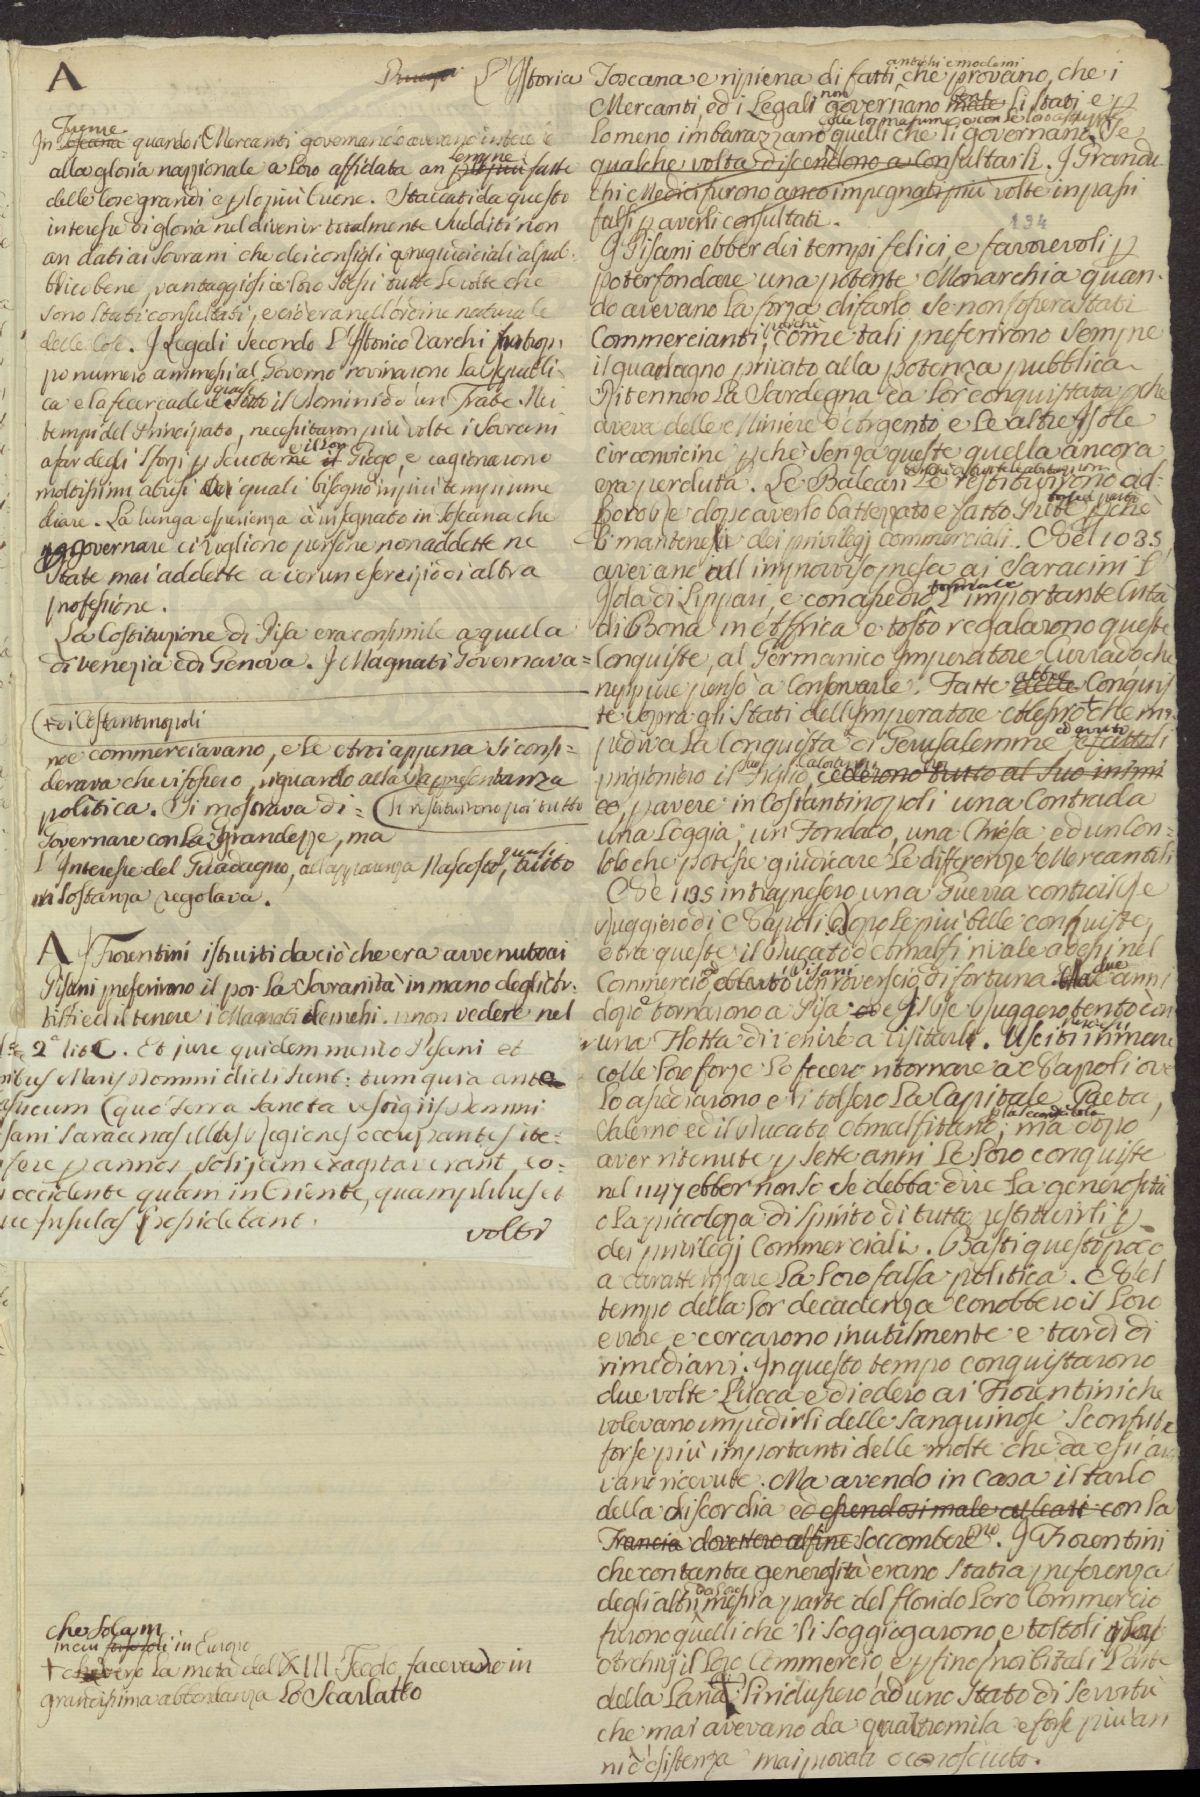 A
In Firenze quando i Mercanti governando avevano interesse
alla gloria nazzionale a loro affidata an sempre fatte
delle cose grandi e p lo più buone. Staccati da questo
interesse di gloria nel divenir totalmente sudditi non
an dati ai Sovrani che dei consigli pregiudiciali al pub-
blico bene, vantaggiosi a loro stessi tutte le volte che
sono stati consultati, e ciò era nell'ordine naturale
delle cose. I Legali secondo l'Istorico Varchi in trop-
po numero ammessi al Governo rovinarono la Republi-
ca e la fecer cadere quasi sotto il dominio d'un Frate. Nei
tempi del Principato, necessitaron più volte i Sovrani
a far degli sforzi p scuoterne il lor Giogo, e cagionarono
moltissimi abusi ai quali bisognò in più tempi rime
diare. La lunga esperienza à insegnato in Toscana che
p governare ci vogliono persone non addette ne
state mai addette a verun esercizio di altra
professione.
La Costituzione di Pisa era consimile a quella
di Venezia e di Genova. I Magnati Governava=
+ di Costantinopoli
no e commerciavano, e le croci appena si consi=
derava che vi fossero, riguardo alla rapresentanza
politica. Si mostrava di=
si restituirono poi tutto
Governare con la Grandezze, ma
l'Interesse del Guadagno, all'apparenza Nascosto, quasi tutto
in sostanza regolava.
A I Fiorentini istruiti da ciò che era avvenuto ai
Pisani preferirono il por la Sovranità in mano degli Ar-
tisti ed il tenere i Magnati indietro. non vedere nel
2ª lit C. Et jure quidem merito Pisani et
Maris Domini dicti sunt: tum quia ante
(quo Terra Sancta vestigiis Domini
Saracenas illas Regiones occupantes ite:
p annos, soli jam exagitaverant, co:
occidente quam in Oriente, quamplures et
Insulas possidebant.
volti
che sola m
in cui in Europa
+ verso la metà del XIII Secolo, facevano in
grandissima abbondanza lo Scarlatto
L'Istoria Toscana e ripiena di fatti antichi e moderni che provano, che i
Mercanti, ed i Legali non governano bene li Stati e p
lo meno imbarazzano quelli che li governano, se
qualche volta discendono a Consultarli. I Grandu
chi Medici furono anco impegnati più volte in passi
falsi p averli consultati.
134
I Pisani ebber dei tempi felici e favorevoli p
poter fondare una potente Monarchia quan-
do avevano la forza di farlo, se non fossero stati
Commercianti, perche come tali preferirono sempre
il guadagno privato alla potenza pubblica
Ritennero la Sardegna da lor conquistata pche
aveva delle Miniere d'argento e le altre Isole
circonvicine pchè senza queste quella ancora
era perduta. Le Baleari le restituirono ad
un Re dopo averlo battezzato e fatto pchè
li mantenesse dei privilegj commerciali. Nel 1035
avevano all'improvviso presa ai Saracini l'
Isola di Lippari, e con assedio formale l'importante Città
di Bona in Affrica e tosto regalarono queste
Conquiste, al Germanico Imperatore Currado che
neppure pensò a Conservarle. Fatte altre Conquis
te sopra gli Stati dell'Imperatore Alessio + che im-
pediva la Conquista di Gerusalemme ed avuto
prigioniero il suo Figlio, cederono tutto al suo inimi
co, p avere in Costantinopoli una Contrada
una Loggia, un Fondaco, una Chiesa ed un Con=
solo che potesse giudicare le differenze Mercantili
Nel 1135 intrapresero una Guerra contro il Re
Ruggiero di Napoli. Dopo le più belle conquiste,
e tra queste il Ducato d'Amalfi rivale ad essi nel
Commercio, ebbero i Pisani un rovescio di fortuna due anni
dopo tornarono a Pisa e il Re Ruggero tentò con
una Flotta di venire a visitarli. Usciti essi in mare
colle loro forze lo fecero ritornare a Napoli ove
lo assediarono e li tolsero la Capitale, Gaeta,
Salerno ed il Ducato Amalfitano; ma dopo
aver ritenute p sette anni le loro conquiste
nel 1147 ebber non so se debba dire la generosità
o la picolezza di spirito di tutto restituirli p
dei privilegj Commerciali. Basti questo poco
a caratterizzare la loro falsa politica. Nel
tempo della lor decadenza conobbero il loro
errore, e cercarono inutilmente e tardi di
rimediarvi. In questo tempo conquistarono
due volte Lucca e diedero ai Fiorentini che
volevano impedirli delle sanguinose sconfitte
forse più importanti delle molte che da essi a-
vano ricevute. Ma avendo in casa il tarlo
della discordia ed essendosi male alleati con la
Francia dovettero alfine soccombere. I Fiorentini
che con tanta generosità erano stati a preferenza
degli altri messi a parte del florido loro Commercio
furono quelli che li soggiogarono, e toltoli
il loro Commercio, e p fino proibitali l'arte
della Lana, li riclusero ad uno stato di servitù
che mai avevano da quattromila e forse più an
ni d'esistenza mai provato o conosciuto.